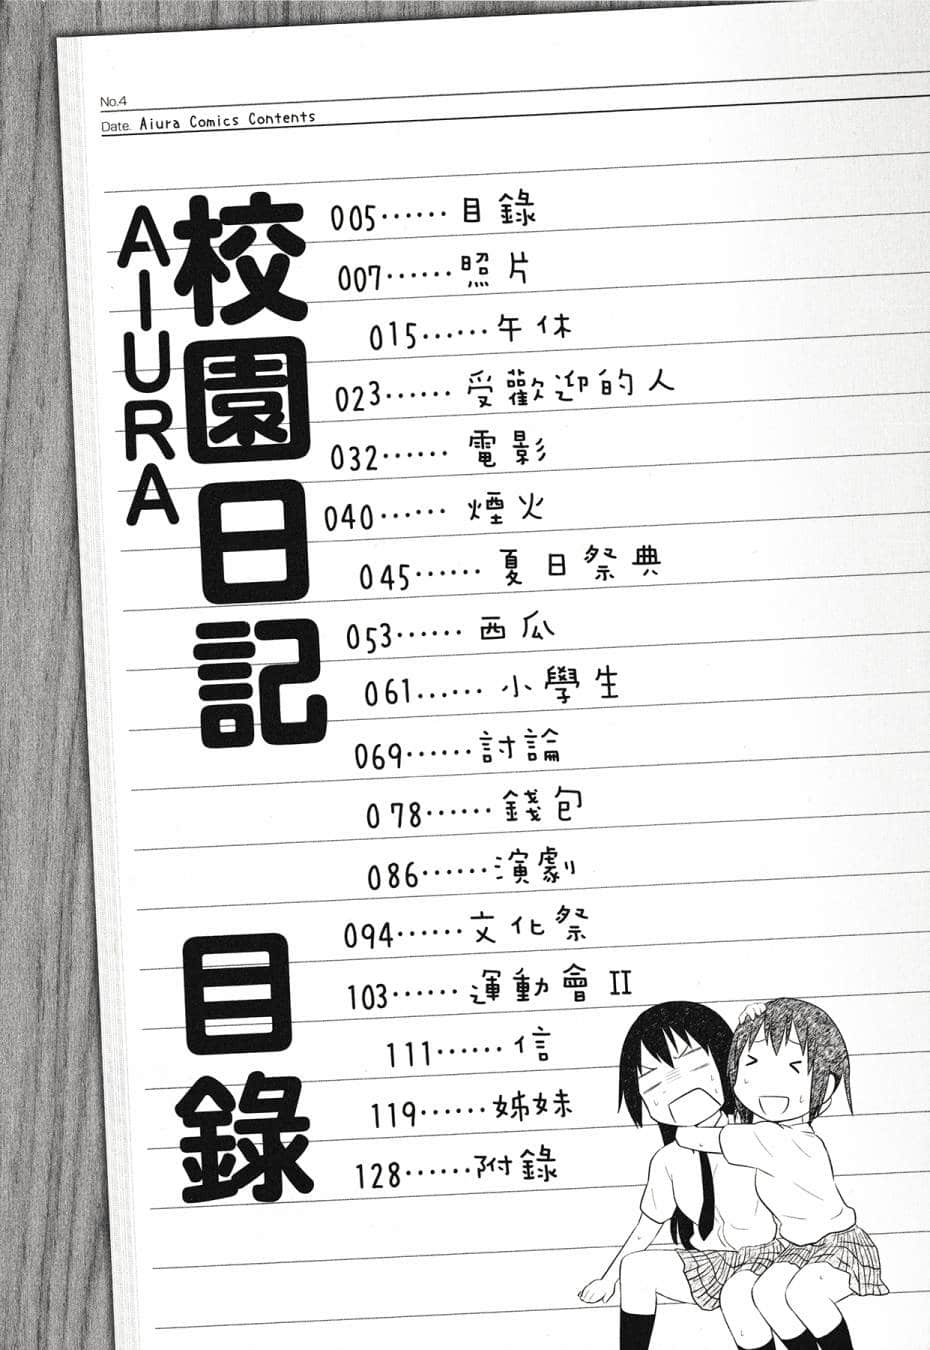 No.4
Date. Aiura Comics Contents
AIURA
校園日記
目錄
005……目錄
007……照片
015……午休
023……受歡迎的人
032……電影
040……煙火
045……夏日祭典
053……西瓜
061……小學生
069……討論
078……錢包
086……演劇
094……文化祭
103……運動會 II
111……信
119……姊妹
128……附錄